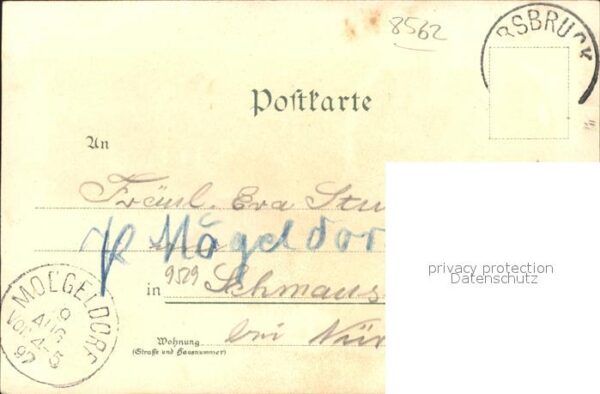 8562
RSBRUCK
Postkarte
An
Fräul. Eva Stu
Mögeldor
9529
in Schmaus
bei Nür
Wohnung
(Straße und Hausnummer)
MOEGELDORF
9
AUG
VOR 4-5
97
privacy protection
Datenschutz